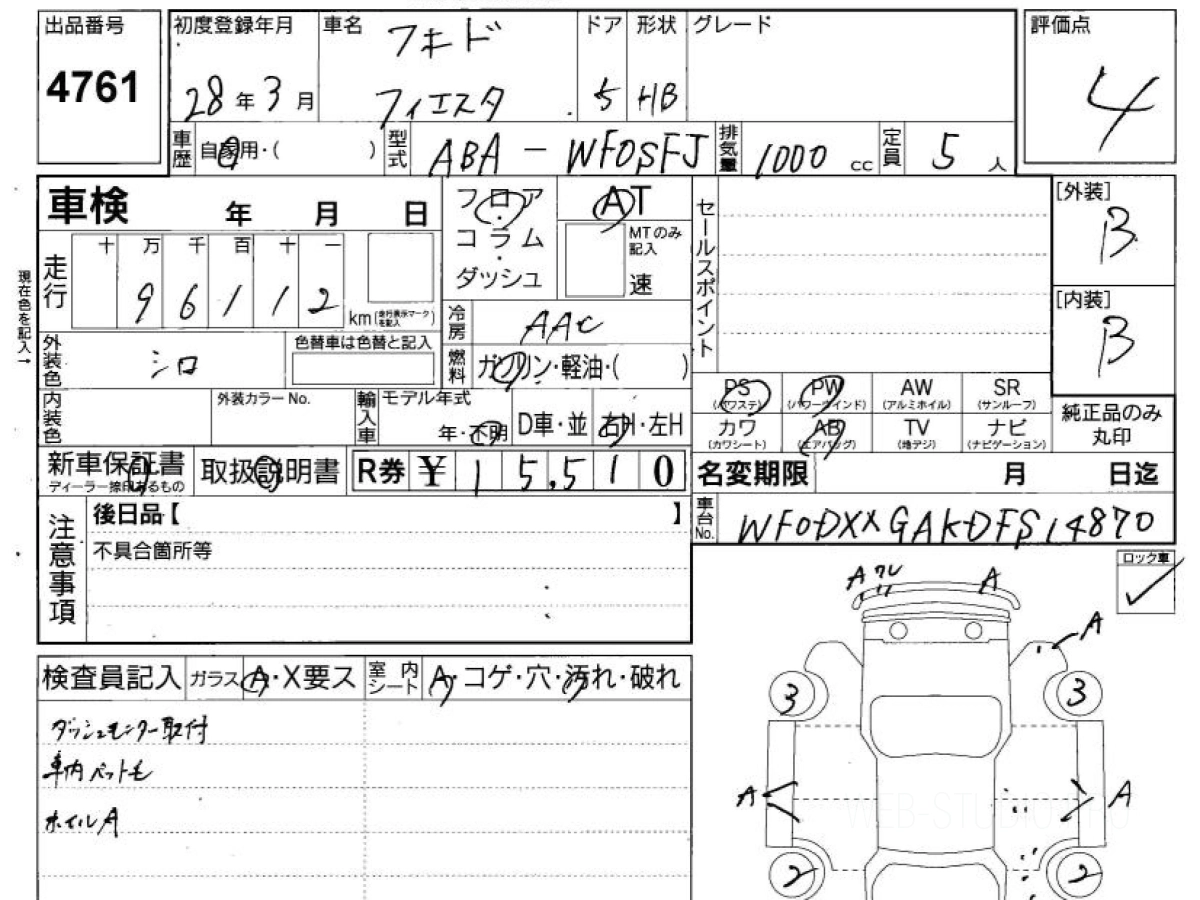 出品番号
4761
初度登録年月
28年3月
車名
フォード
フィエスタ
ドア
5
形状
HB
グレード
評価点
4
車歴
自家用・( )
型式
ABA - WF0SFJ
排気量
1000 cc
定員
5人
車検 年 月 日
フロア
・
コラム
・
ダッシュ
AT
MTのみ
記入
速
セールスポイント
[外装]
B
[内装]
B
現在色を記入→
走行
十 万 千 百 十 一
9 6 1 1 2
km(走行表示マークを記入)
冷房
AAC
外装色
シロ
色替車は色替と記入
燃料
ガソリン・軽油・( )
PS (パワステ)
PW (パワーウインド)
AW (アルミホイル)
SR (サンルーフ)
カワ (カワシート)
AB (エアバッグ)
TV (地デジ)
ナビ (ナビゲーション)
純正品のみ
丸印
内装色
外装カラーNo.
輸入車
モデル年式
年・不明
D車・並
右H・左H
新車保証書
ディーラー捺印あるもの
取扱説明書
R券 ¥ 15,510
名変期限 月 日迄
車台No.
WF0DXXGAKDFS14870
注意事項
後日品【 】
不具合箇所等
ロック車
✓
検査員記入
ガラス A・X要ス
室内シート
A・コゲ・穴・汚れ・破れ
ダッシュモニター取付
車内ペット毛
ホイルA
A ワレ A
A
3 3
A A
2 2
WEB-STUDIO